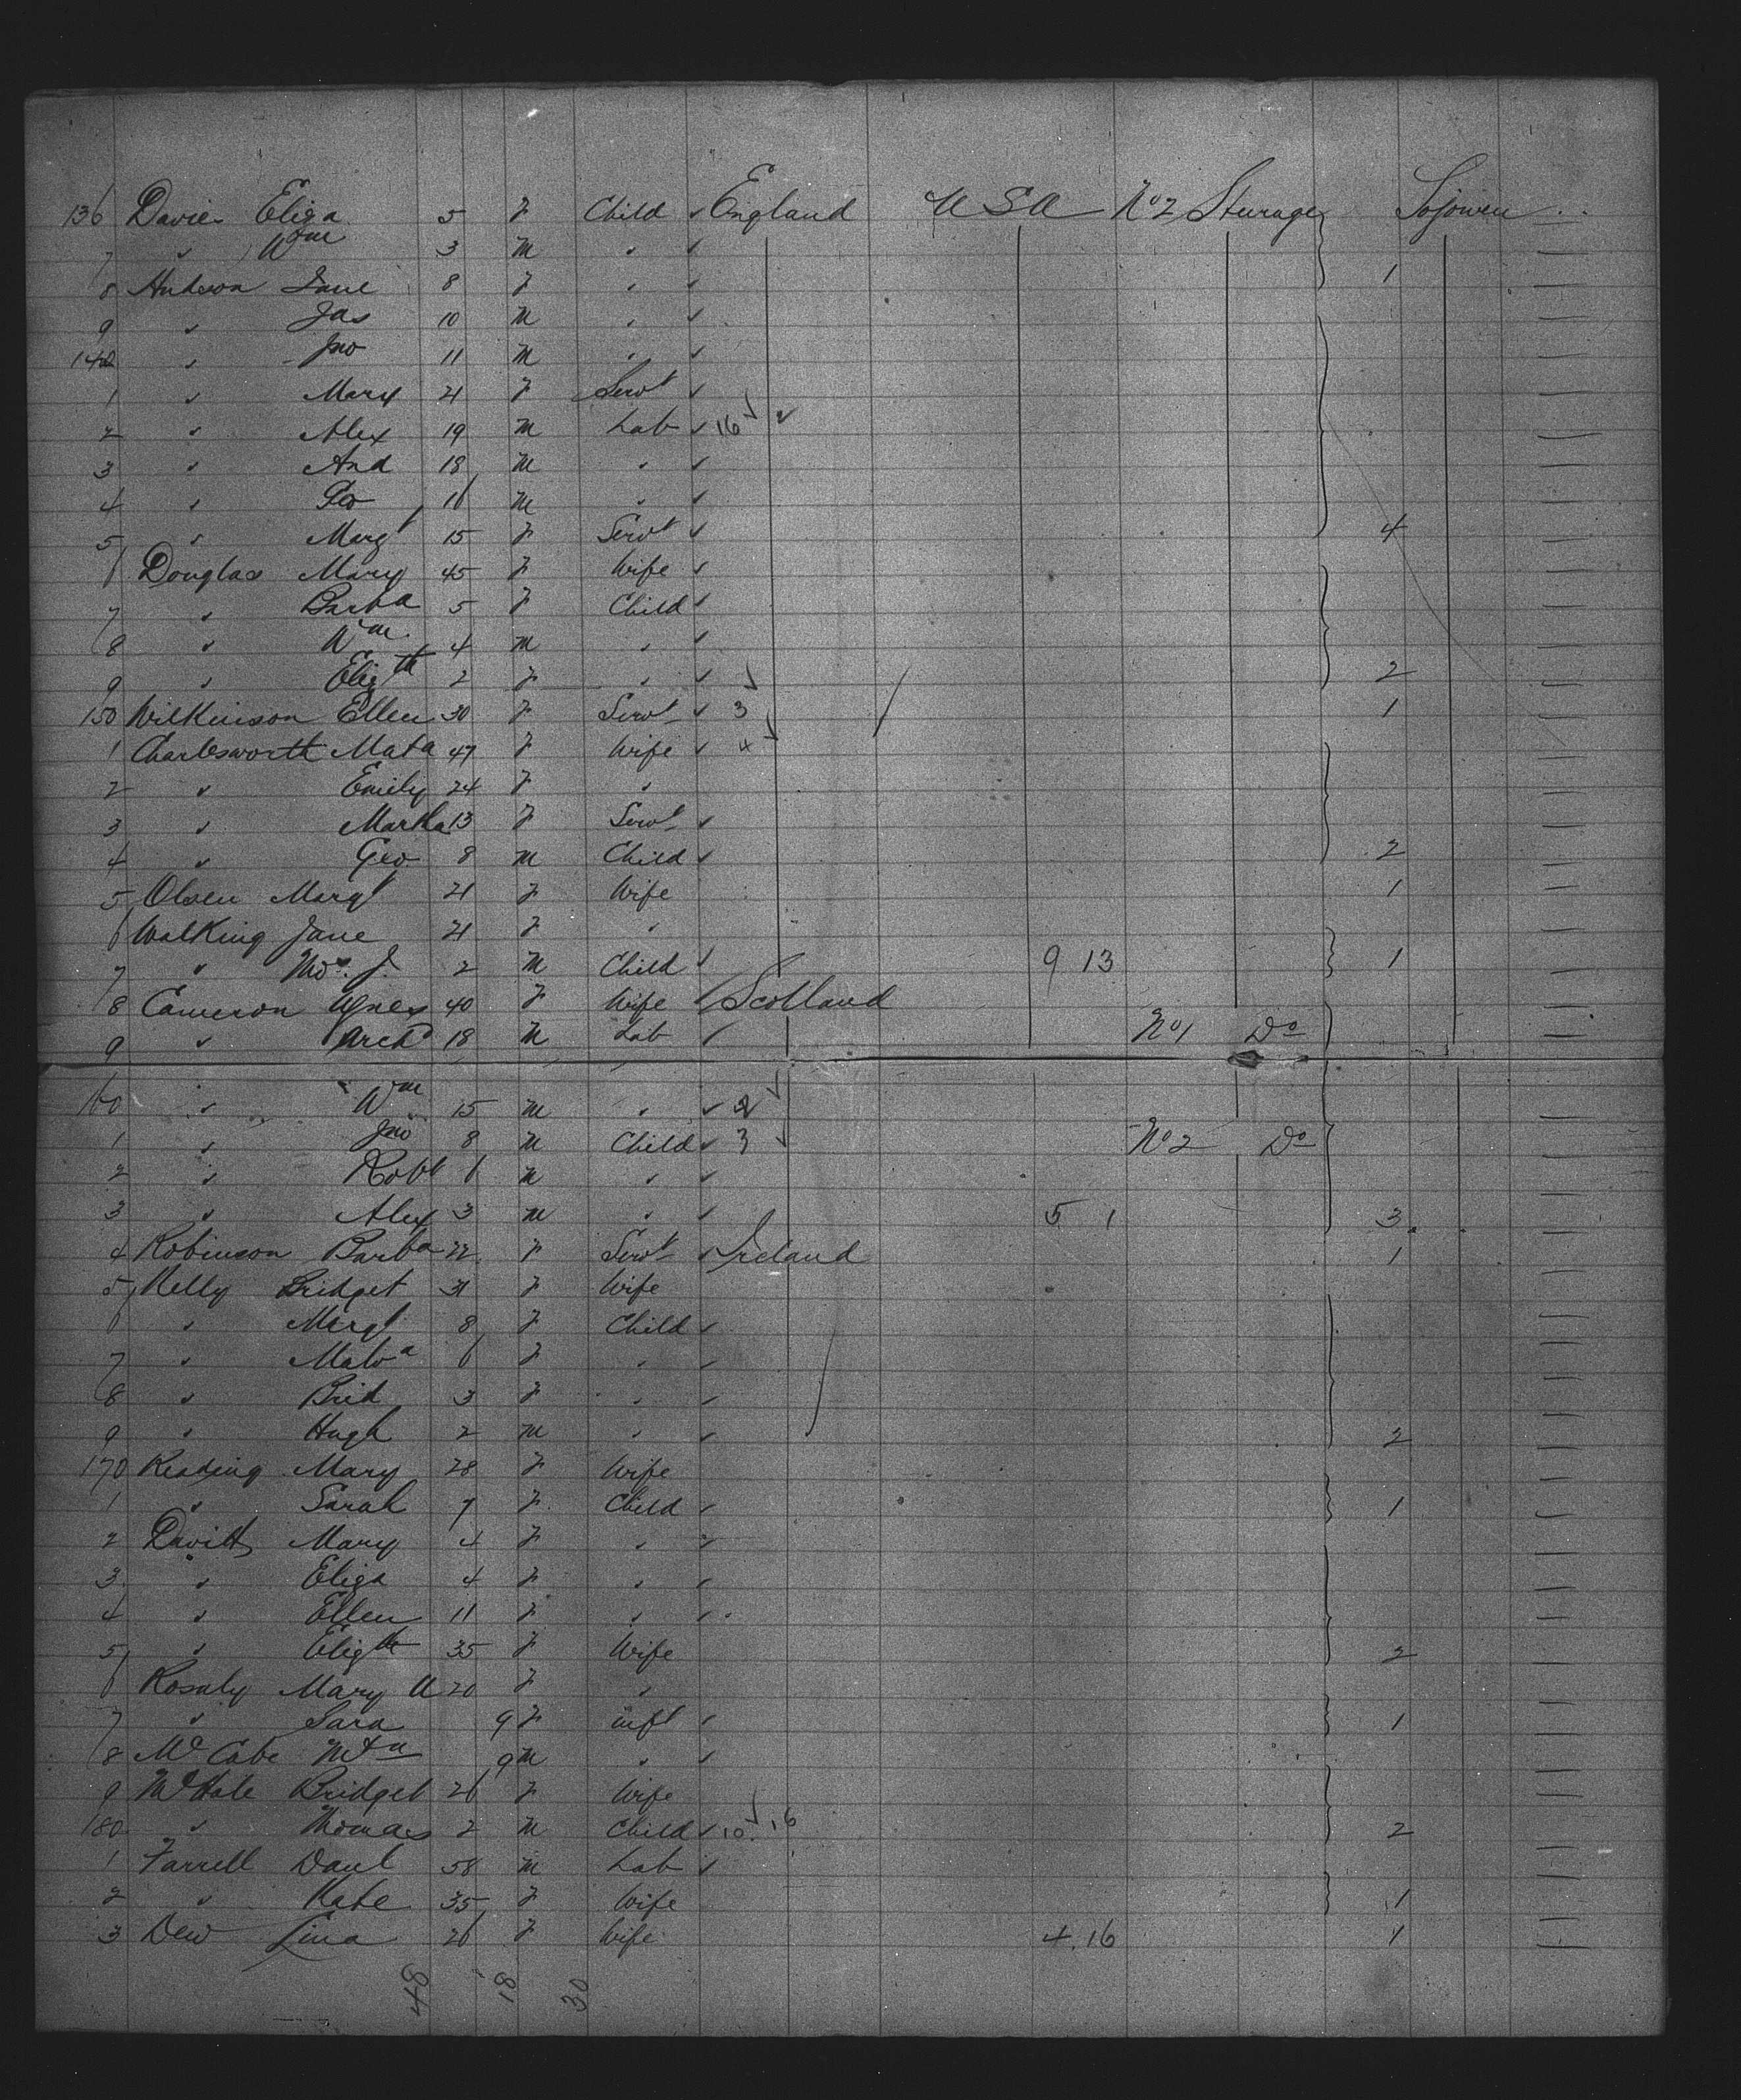 136 Davies Eliza 5 F Child ✓ England USA No 2 Steerage Sojourn
7 " Wm 3 M " ✓
8 Anderson Jane 8 F " ✓ 1
9 " Jas 10 M " ✓
140 " Jno 11 M " ✓
1 " Mary 21 F Servt ✓
2 " Alex 19 M Lab ✓ 16 ✓ ✓
3 " And 18 M " ✓
4 " Geo 16 M " ✓
5 " Margt 15 F Servt ✓ 4
6 Douglas Mary 45 F Wife ✓
7 " Barba 5 F Child ✓
8 " Wm 4 M " ✓
9 " Elizth 2 F " ✓ 2
150 Wilkinson Ellen 30 F Servt ✓ 3 1
1 Charlesworth Mata 47 F Wife ✓ 4
2 " Emily 24 F "
3 " Martha 13 F Servt ✓
4 " Geo 8 M Child ✓ 2
5 Olsen Margt 21 F Wife 1
6 Walking Jane 21 F "
7 " Thos. J. 2 M Child ✓ 9 13 1
8 Cameron Agnes 40 F Wife ✓ Scotland
9 " Archd 18 M Lab ✓ No 1 Do
160 " Wm 15 M " ✓ 2
1 " Jno 8 M Child ✓ 3 No 2 Do
2 " Robt 6 M " ✓
3 " Alex 3 M " ✓ 5 1 3
4 Robinson Barba 22 F Servt ✓ Ireland 1
5 Kelly Bridget 31 F Wife
6 " Margt 8 F Child ✓
7 " 6 F " ✓
8 " Brid 3 F " ✓
9 " Hugh 2 M " ✓ 2
170 Keading Mary 28 F Wife
1 " Sarah 7 F Child ✓ 1
2 Davitt Mary 4 F " ✓
3 " Eliza 4 F " ✓
4 " Ellen 11 F " ✓
5 " Elizth 35 F Wife 2
6 Mary A 20 F "
7 " Sara 9 F inft ✓ 1
8 McCabe 9 M " ✓
9 McHale Bridget 26 F Wife
180 " Thomas 2 M Child ✓ 10 16 2
1 Farrell Danl 58 M Lab ✓
2 " Kate 35 F Wife 1
3 Dew Lina 26 F Wife 4.16 1
48 18 30